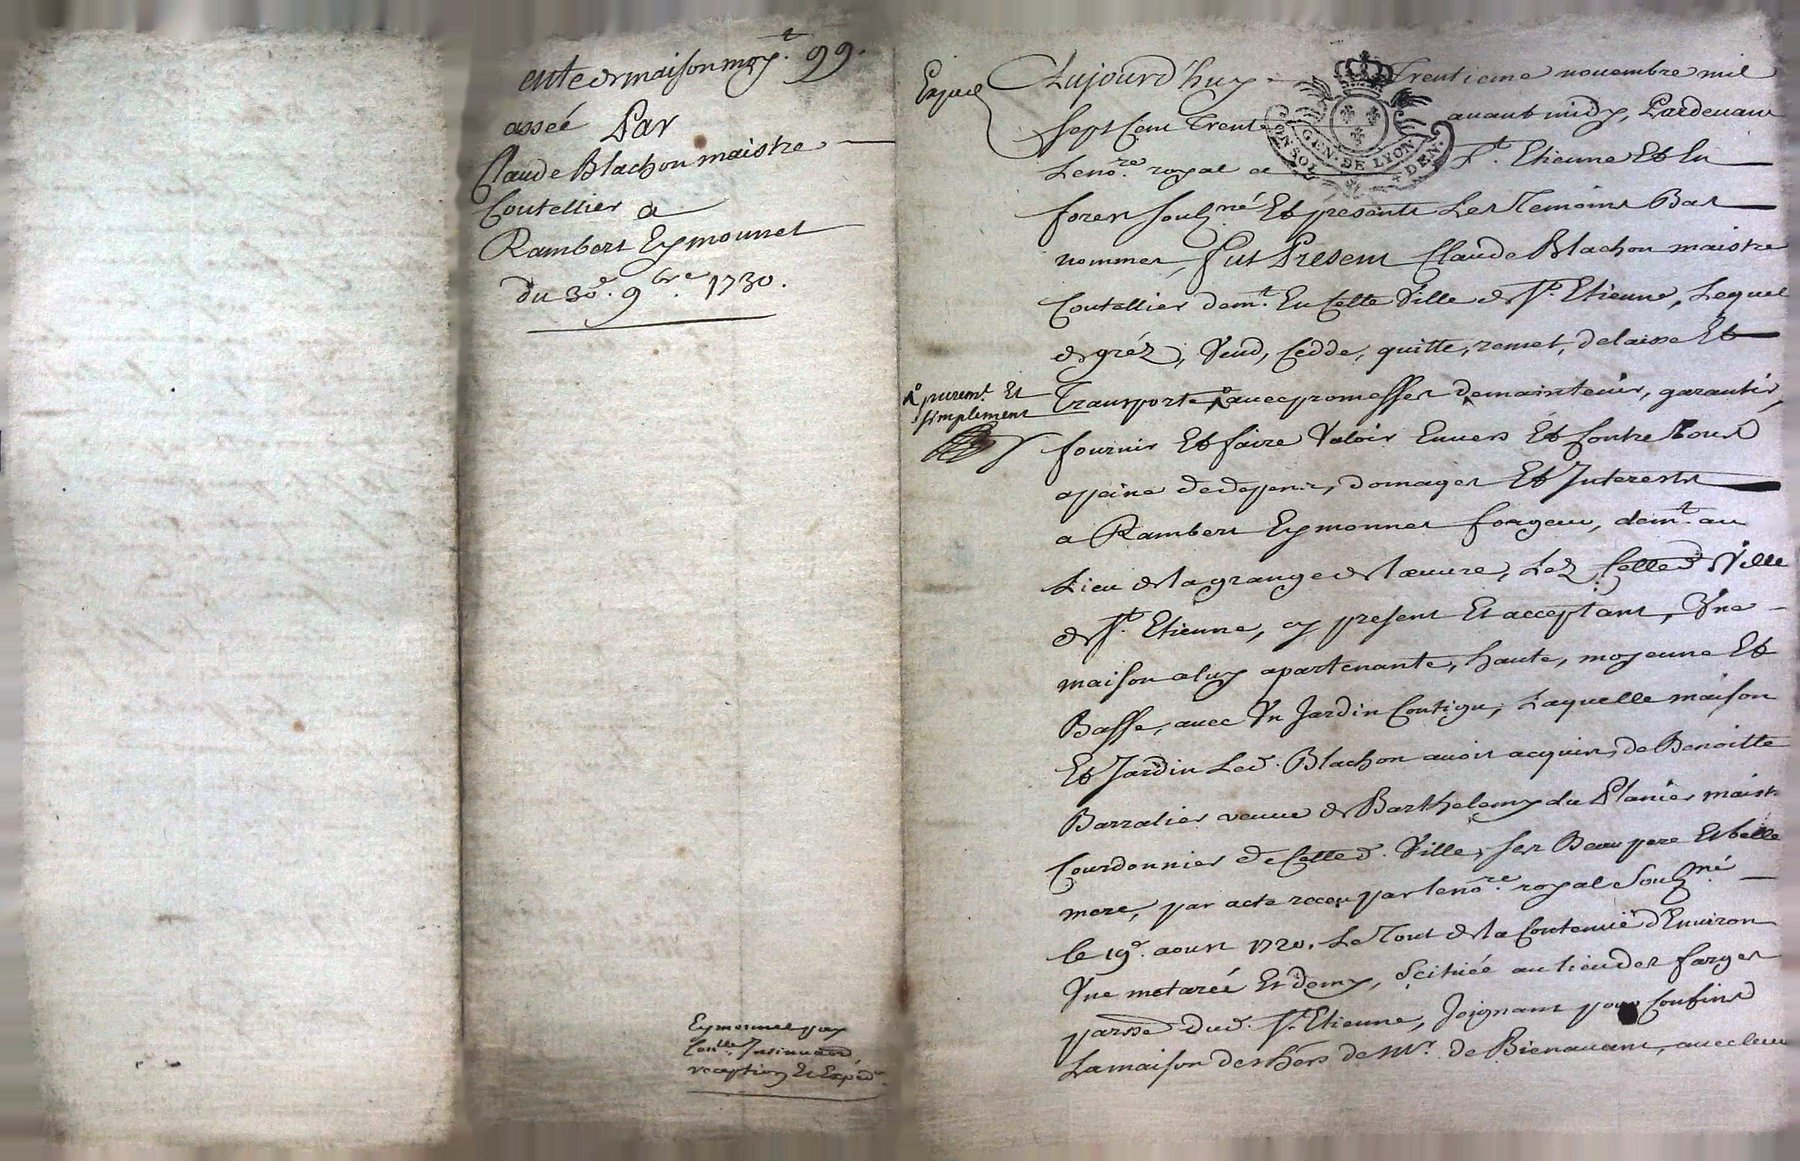 ente de maison moy.t 99.
assée Par
Claude Blachon maistre
Coutellier a
Rambert Eymonnet
du 30e. 9bre. 1730.
Eymonnet pay
Con.lle Insinuaon,
reception Et Exped.
Aujourd'huy trentieme nouembre mil
sept Cent Trente auant midy, Pardeuant
Le no.re royal a St. Etienne Et en
forest soubz.né Et presents Les Temoins Bas
nommes, fut Present Claude Blachon maistre
Coutellier dem.t En Cette Ville de St. Etienne, Lequel
de gréz, Vend, Cedde, quitte, remet, delaisse Et
purem.t Et
simplement
Transporte, auec promesses de maintenir, garantir,
fournir Et faire Valoir Enuers Et Contre Tous
a peine de depens, domages Et Interests
a Rambert Eymonnet forgeur, dem.t au
Lieu de la grange de l'œuure, Lez Cetted. Ville
de St. Etienne, cy present Et acceptant, Vne
maison a luy apartenante, haute, moyenne Et
Basse, auec Vn Jardin Contigu, Laquelle maison
Et Jardin Led. Blachon auoit acquis, de Benoitte
Barralier veuue de Barthelemy du Planier maist
Courdonnier de Cetted. Ville, ses Beau pere Et belle
mere, par acte receu par le no.re royal Soubz.né
le 19e. aoust 1720. Le Tout de la Contenüe d'Enuiron
Vne metareé Et demy, Scituée au lieu des farges
parsse dud. St. Etienne, Joignant pour Confins
La maison des hers de Mr. de Bienauant, auec leur
GEN. DE LYON